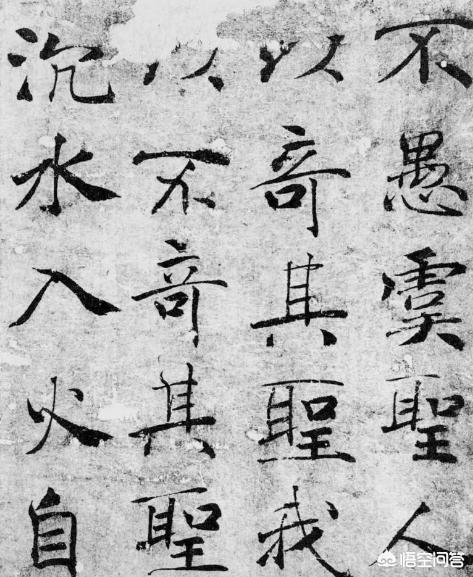 不愚虞聖人
以奇其聖我
以不奇其聖
沉水入火自
悟空问答